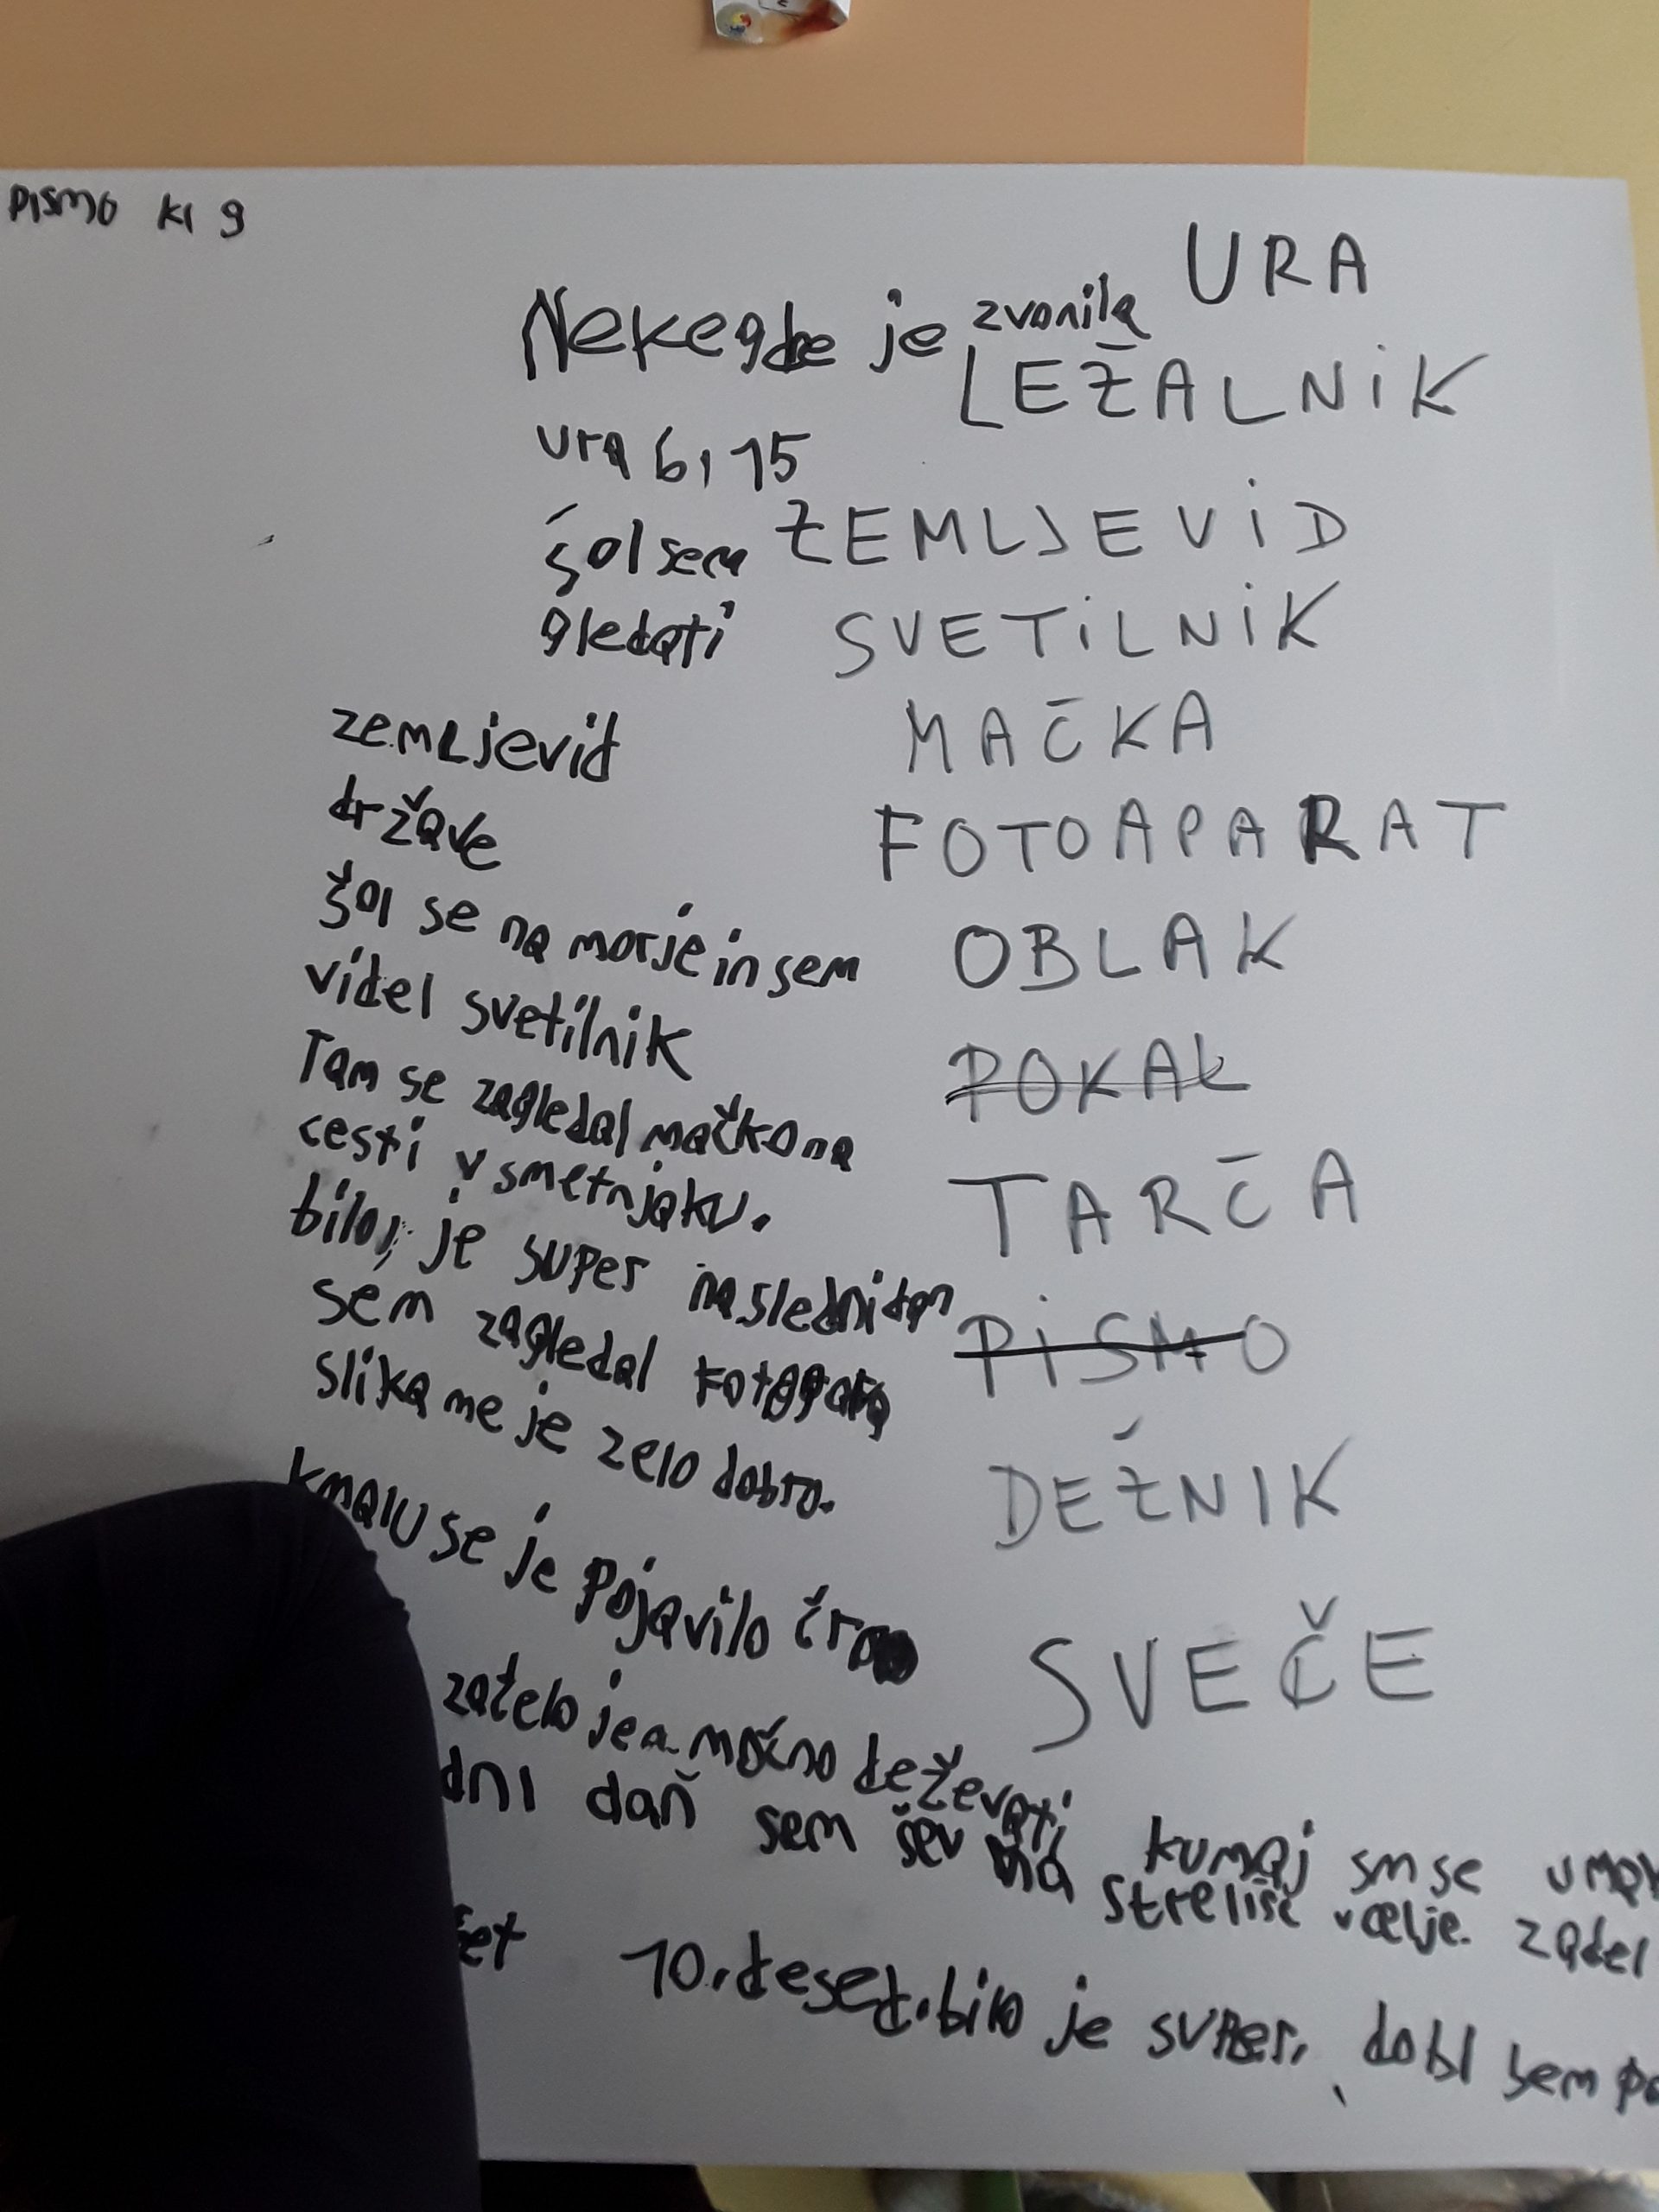 PISMO KI 9
URA
LEŽALNIK
ZEMLJEVID
SVETILNIK
MAČKA
FOTOAPARAT
OBLAK
POKAL
TARČA
PISMO
DEŽNIK
SVEČE
Nekegde je zvonila
ura 6,15
šol sem
gledati
zemljevid
države
šol se na morje in sem
videl svetilnik
Tam se zagledal mačko na
cesti v smetnjaku.
bilo, je super naslednidan
sem zagledal
slika me je zelo dobro.
kmalu se je pojavilo
začelo je močno deževati kumaj sm se
dni dan sem šev na streliše v celje. zadel
10. desed. bilo je super, dobl sem